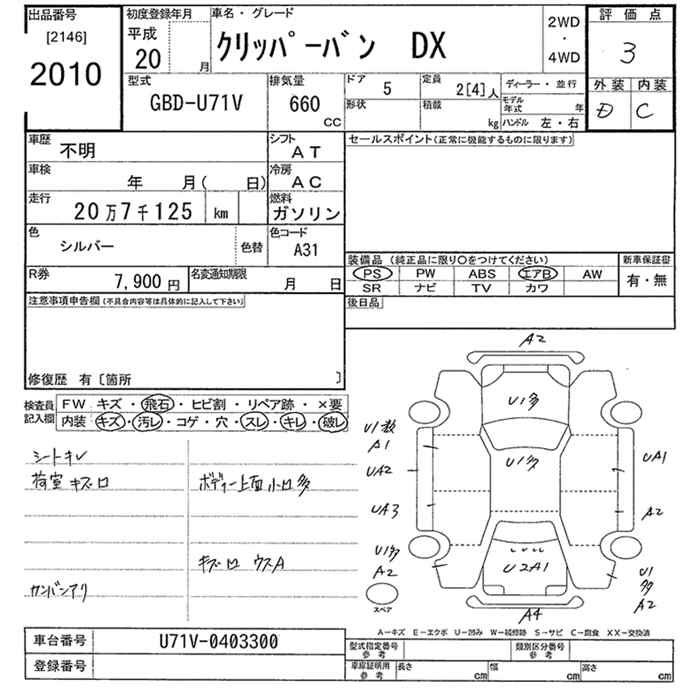 出品番号
[2146]
2010
初度登録年月
平成
20
月
車名・グレード
クリッパーバン DX
2WD
・
4WD
評価点
3
外装 内装
D C
型式
GBD-U71V
排気量
660
CC
ドア
5
定員
2[4]人
ディーラー・並行
形状
積載
kg
モデル年式
年
ハンドル 左・右
車歴
不明
シフト
AT
セールスポイント(正常に機能するものに限ります)
車検
年 月( 日)
冷房
AC
走行
20万7千125 km
燃料
ガソリン
色
シルバー
色替
色コード
A31
装備品(純正品に限り○をつけてください)
新車保証書
PS PW ABS エアB AW
SR ナビ TV カワ
有・無
R券
7,900円
名変通知期限
月 日
後日品
注意事項申告欄(不具合内容等は具体的に記入して下さい)
修復歴 有〔箇所 〕
検査員
記入欄
FW キズ・飛石・ヒビ割・リペア跡・×要
内装 キズ・汚レ・コゲ・穴・スレ・キレ・破レ
シートキレ
荷室キズロ
ボディー上面小ロ多
キズロ ウスA
カンバンアリ
A2
U1多
U1数
A1
U1多
UA1
UA2
UA3
A2
U1多
A2
U2A1
U1
多
A2
スペア
A4
A－キズ E－エクボ U－凹み W－補修跡 S－サビ C－腐食 XX－交換済
車台番号
U71V-0403300
型式指定番号
参考
類別区分番号
参考
登録番号
車庫証明用
参考
長さ
cm
幅
cm
高さ
cm